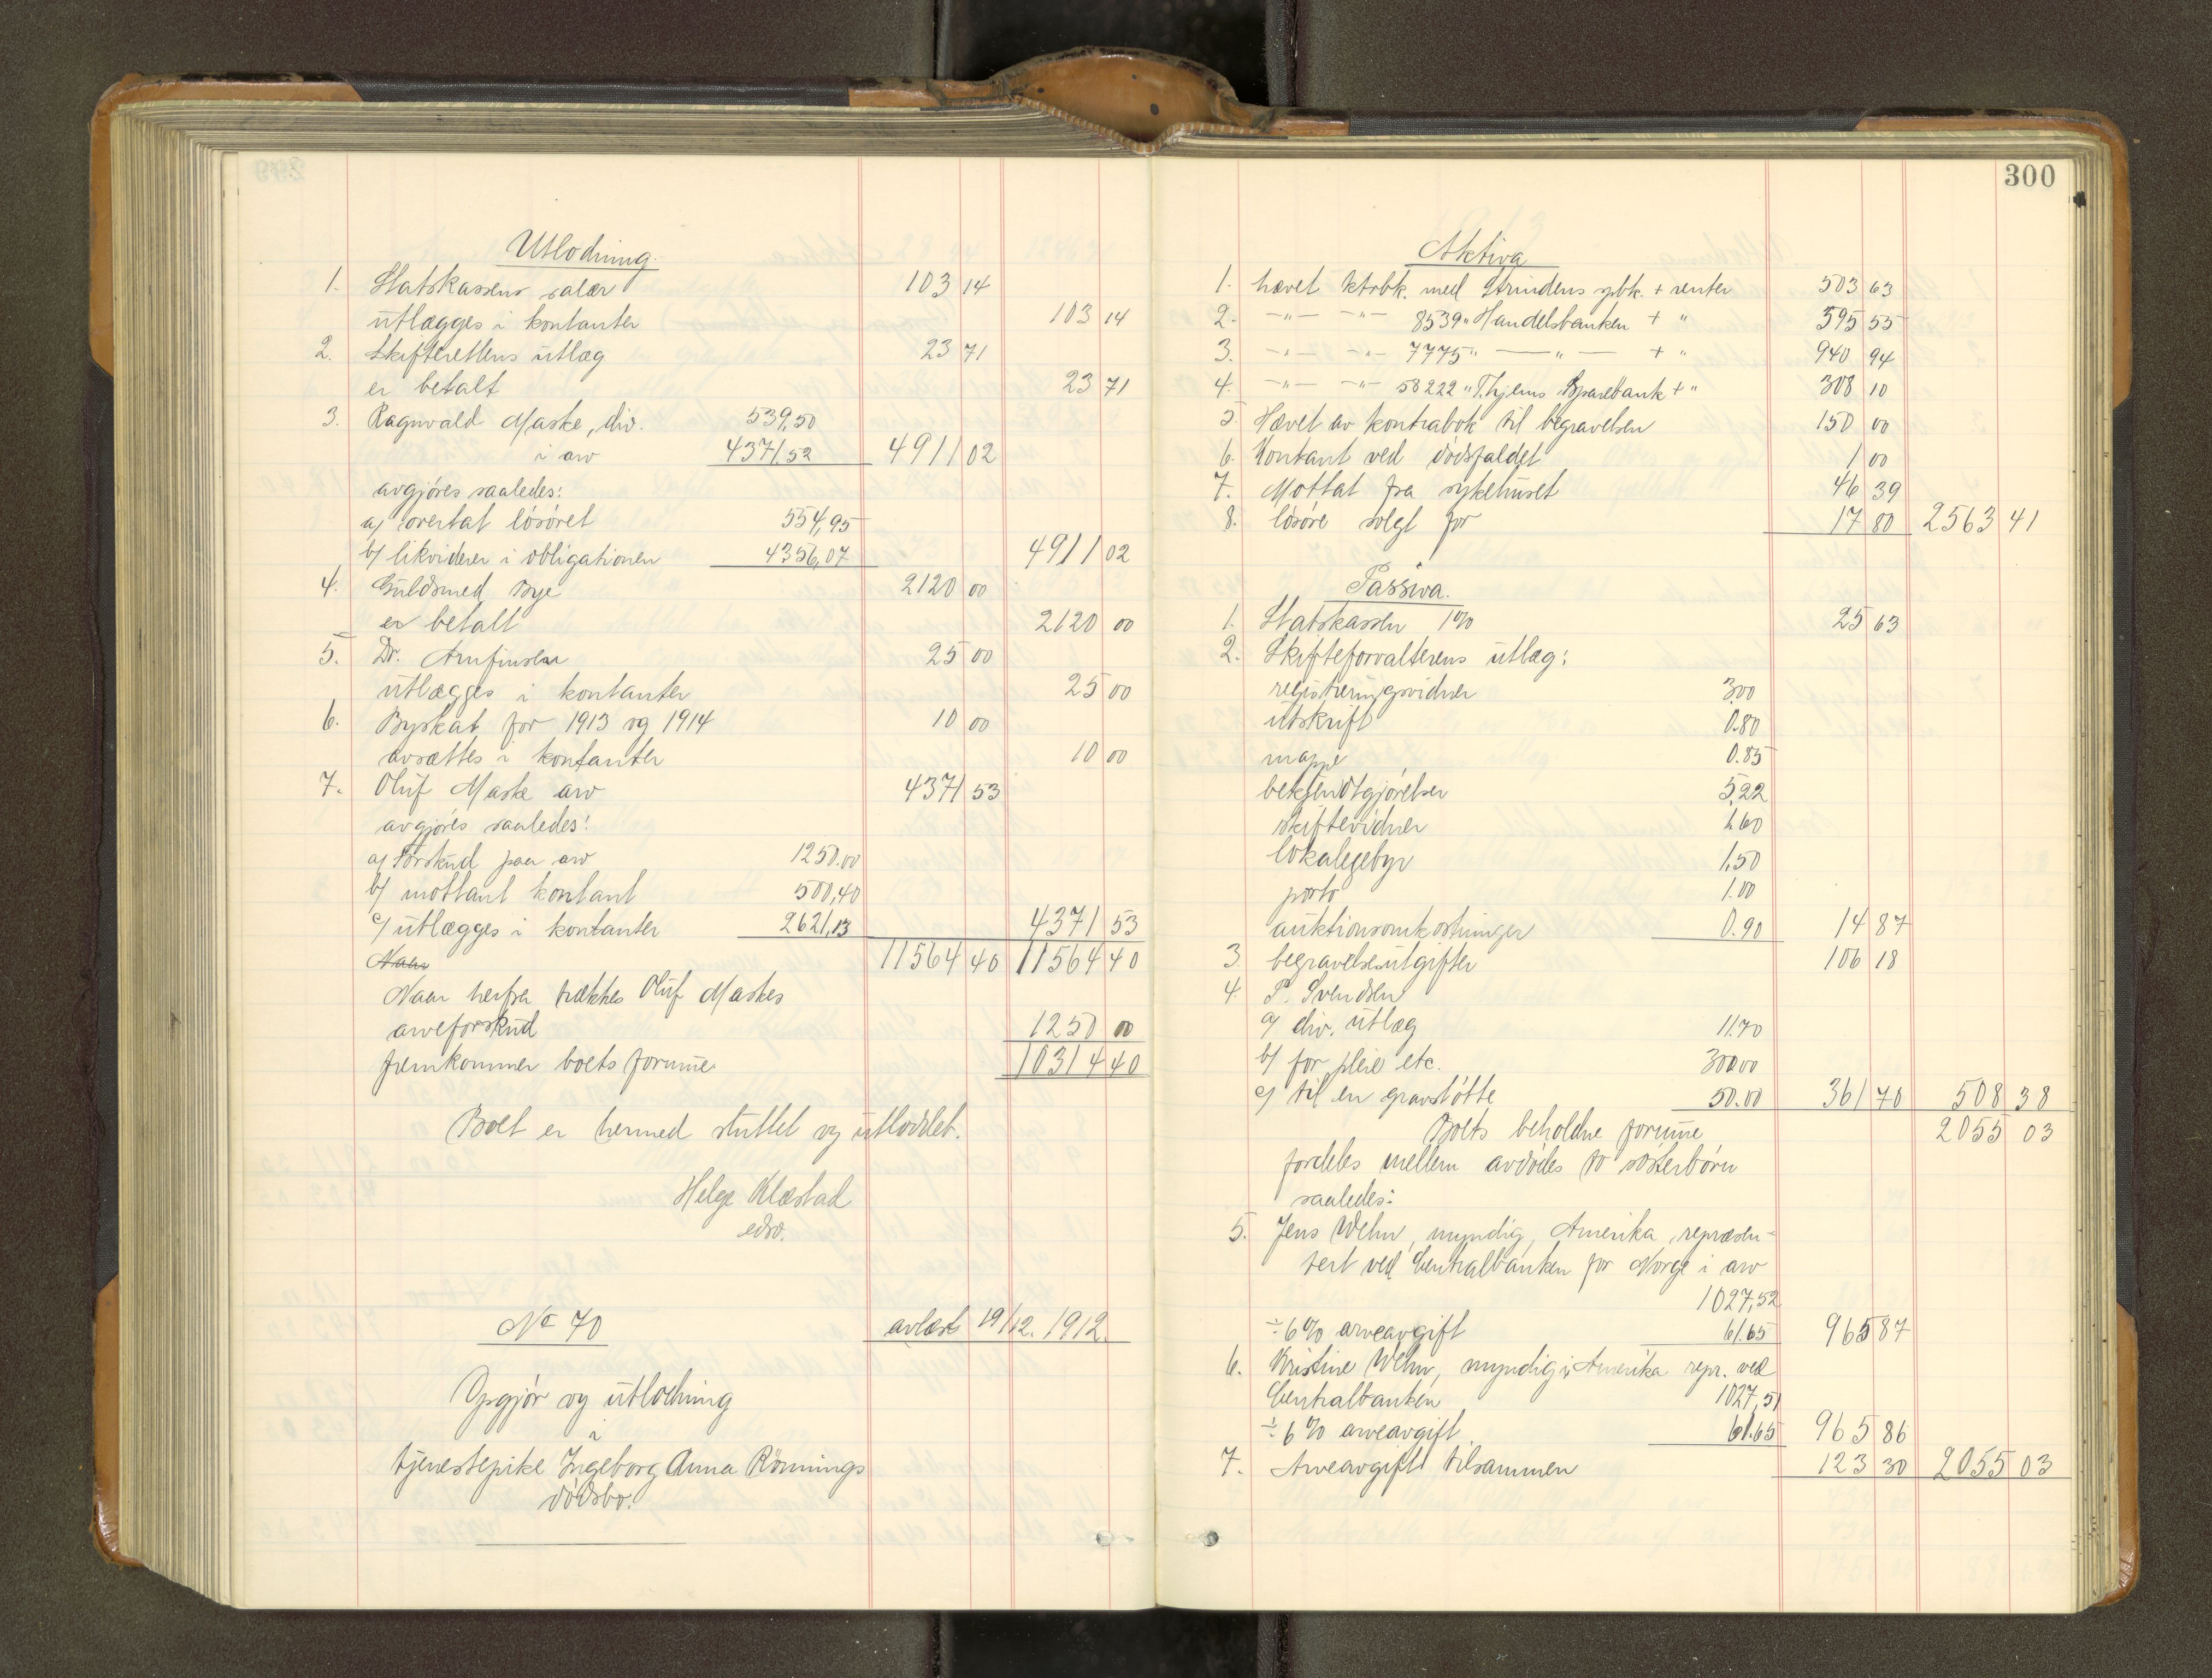 Utlodning.
1. Statskassens salær 103 14
utlægges i kontanter 103 14
2. Skifterettens utlæg 23 71
er betalt 23 71
3. Ragnvald Maske, div. 539,50
i arv 4371,52 4911 02
avgjøres saaledes:
a/ overtat løsøret 554,95
b/ likviderer i obligationer 4356,07 4911 02
4. Guldsmed Bye 2120 00
er betalt 2120 00
5. Dr. Arnfinsen 25 00
utlægges i kontanter 25 00
6. Byskat for 1913 og 1914 10 00
avsættes i kontanter 10 00
7. Oluf Maske arv 4371 53
avgjøres saaledes:
a/ Forskud paa arv 1250.00
b/ mottaat kontant 500,40
c/ utlægges i kontanter 2621,13 4371 53
Naar 11564 40 11564 40
Naar herfra trækkes Oluf Maskes
arveforskud 1250 00
fremkommer boets formue 10314 40
Boet er hermed sluttet og utloddet.
Helge Klæstad
edsv.
No 70 avlæst 19/12. 1912.
Opgjør og utlodning
i
tjenestepike Ingeborg Anna Rönnings
dødsbo.
300
Aktiva
1. hævet ktrbk. med Strindens spbk. + renter 503 63
2. -"- -"- 8539 " Handelsbanken + " 595 55
3. -"- -"- 7775 " -"- + " 940 94
4. -"- -"- 58222 " T.hjems Sparebank + " 308 10
5. Hævet av kontrabok til begravelsen 150 00
6. Kontant ved dødsfaldet 1 00
7. Mottat fra sykehuset 46 39
8. løsøre solgt for 17 80 2563 41
Passiva.
1. Statskassen 1% 25 63
2. Skifteforvalterens utlæg:
registreringsvidner 3,00
utskrift 0.80
mappe 0.85
bekjendtgjørelser 5,22
skiftevidner 1.60
lokalegebyr 1,50
porto 1.00
auktionsomkostninger 0.90 14 87
3. begravelsesutgifter 106 18
4. P. Svendsen
a/ div. utlæg 11.70
b/ for pleie etc. 300.00
c/ til en gravstøtte 50.00 361 70 508 38
Boets beholdne formue 2055 03
fordeles mellem avdødes to søsterbørn
saaledes:
5. Jens Wehn, myndig, Amerika, repræsen-
tert ved Centralbanken for Norge i arv
1027,52
÷ 6% arveavgift 61.65 965 87
6. Kristine Wehn, myndig i Amerika repr. ved
Centralbanken 1027,51
÷ 6% arveavgift 61.65 965 86
7. Arveavgift tilsammen 123 30 2055 03